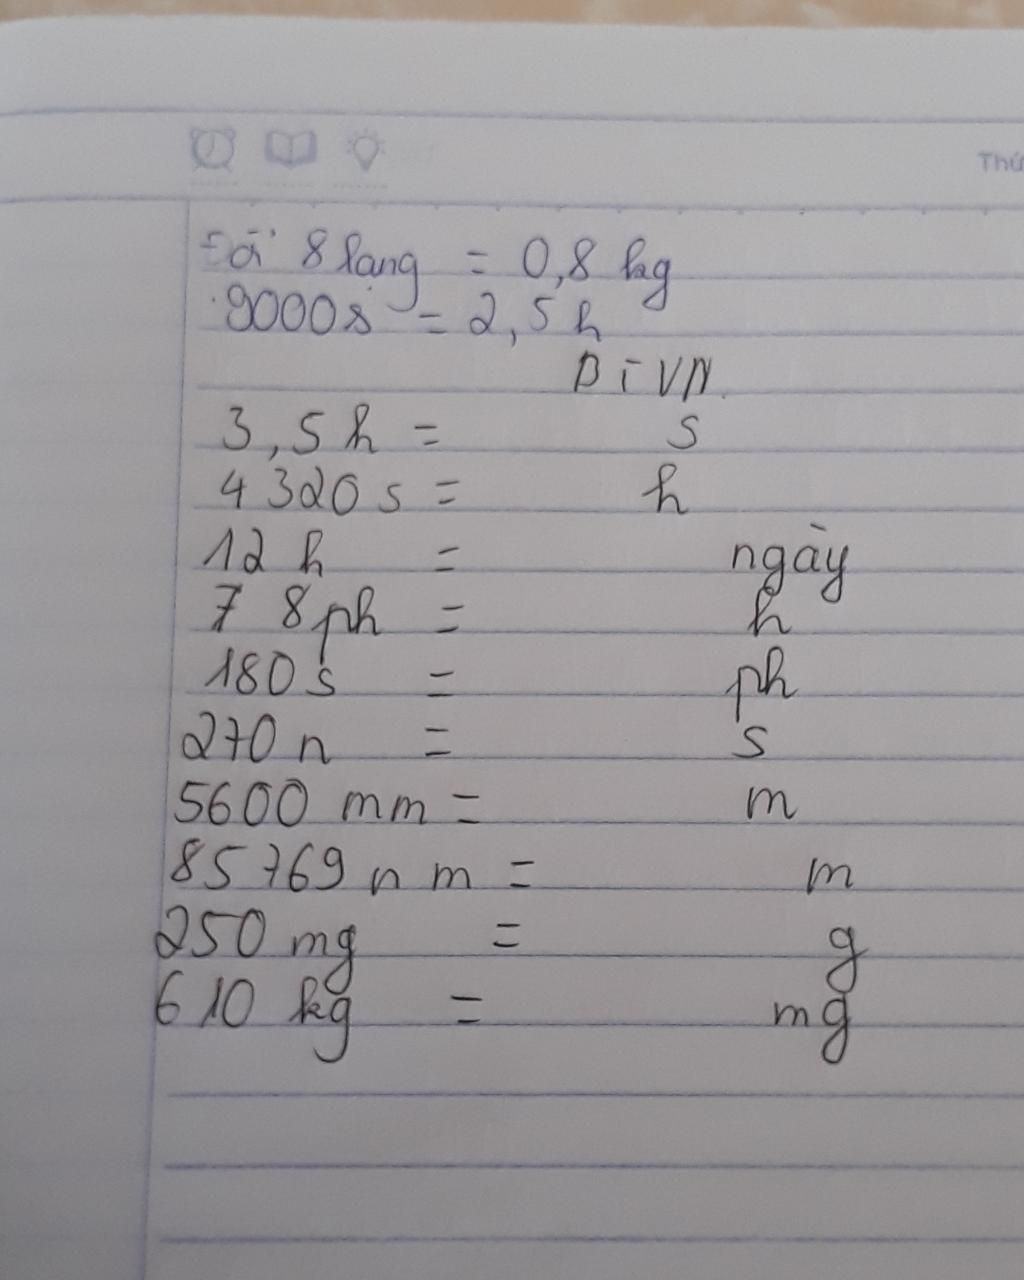 Thứ
Đổi 8 lạng = 0,8 kg
9000s = 2,5 h
BTVN
3,5 h = s
4320 s = h
12 h = ngày
78 ph = h
180 s = ph
270 n = s
5600 mm = m
85769 nm = m
250 mg = g
610 kg = mg